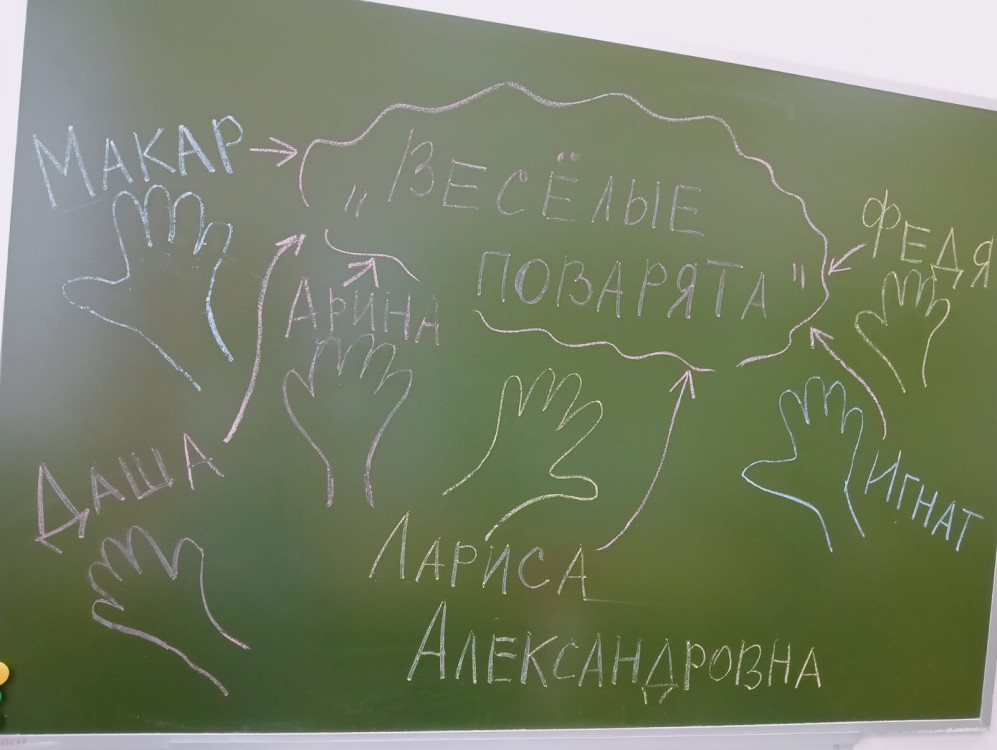 Макар
„Весёлые
поварята"
Федя
Арина
Даша
Игнат
Лариса
Александровна